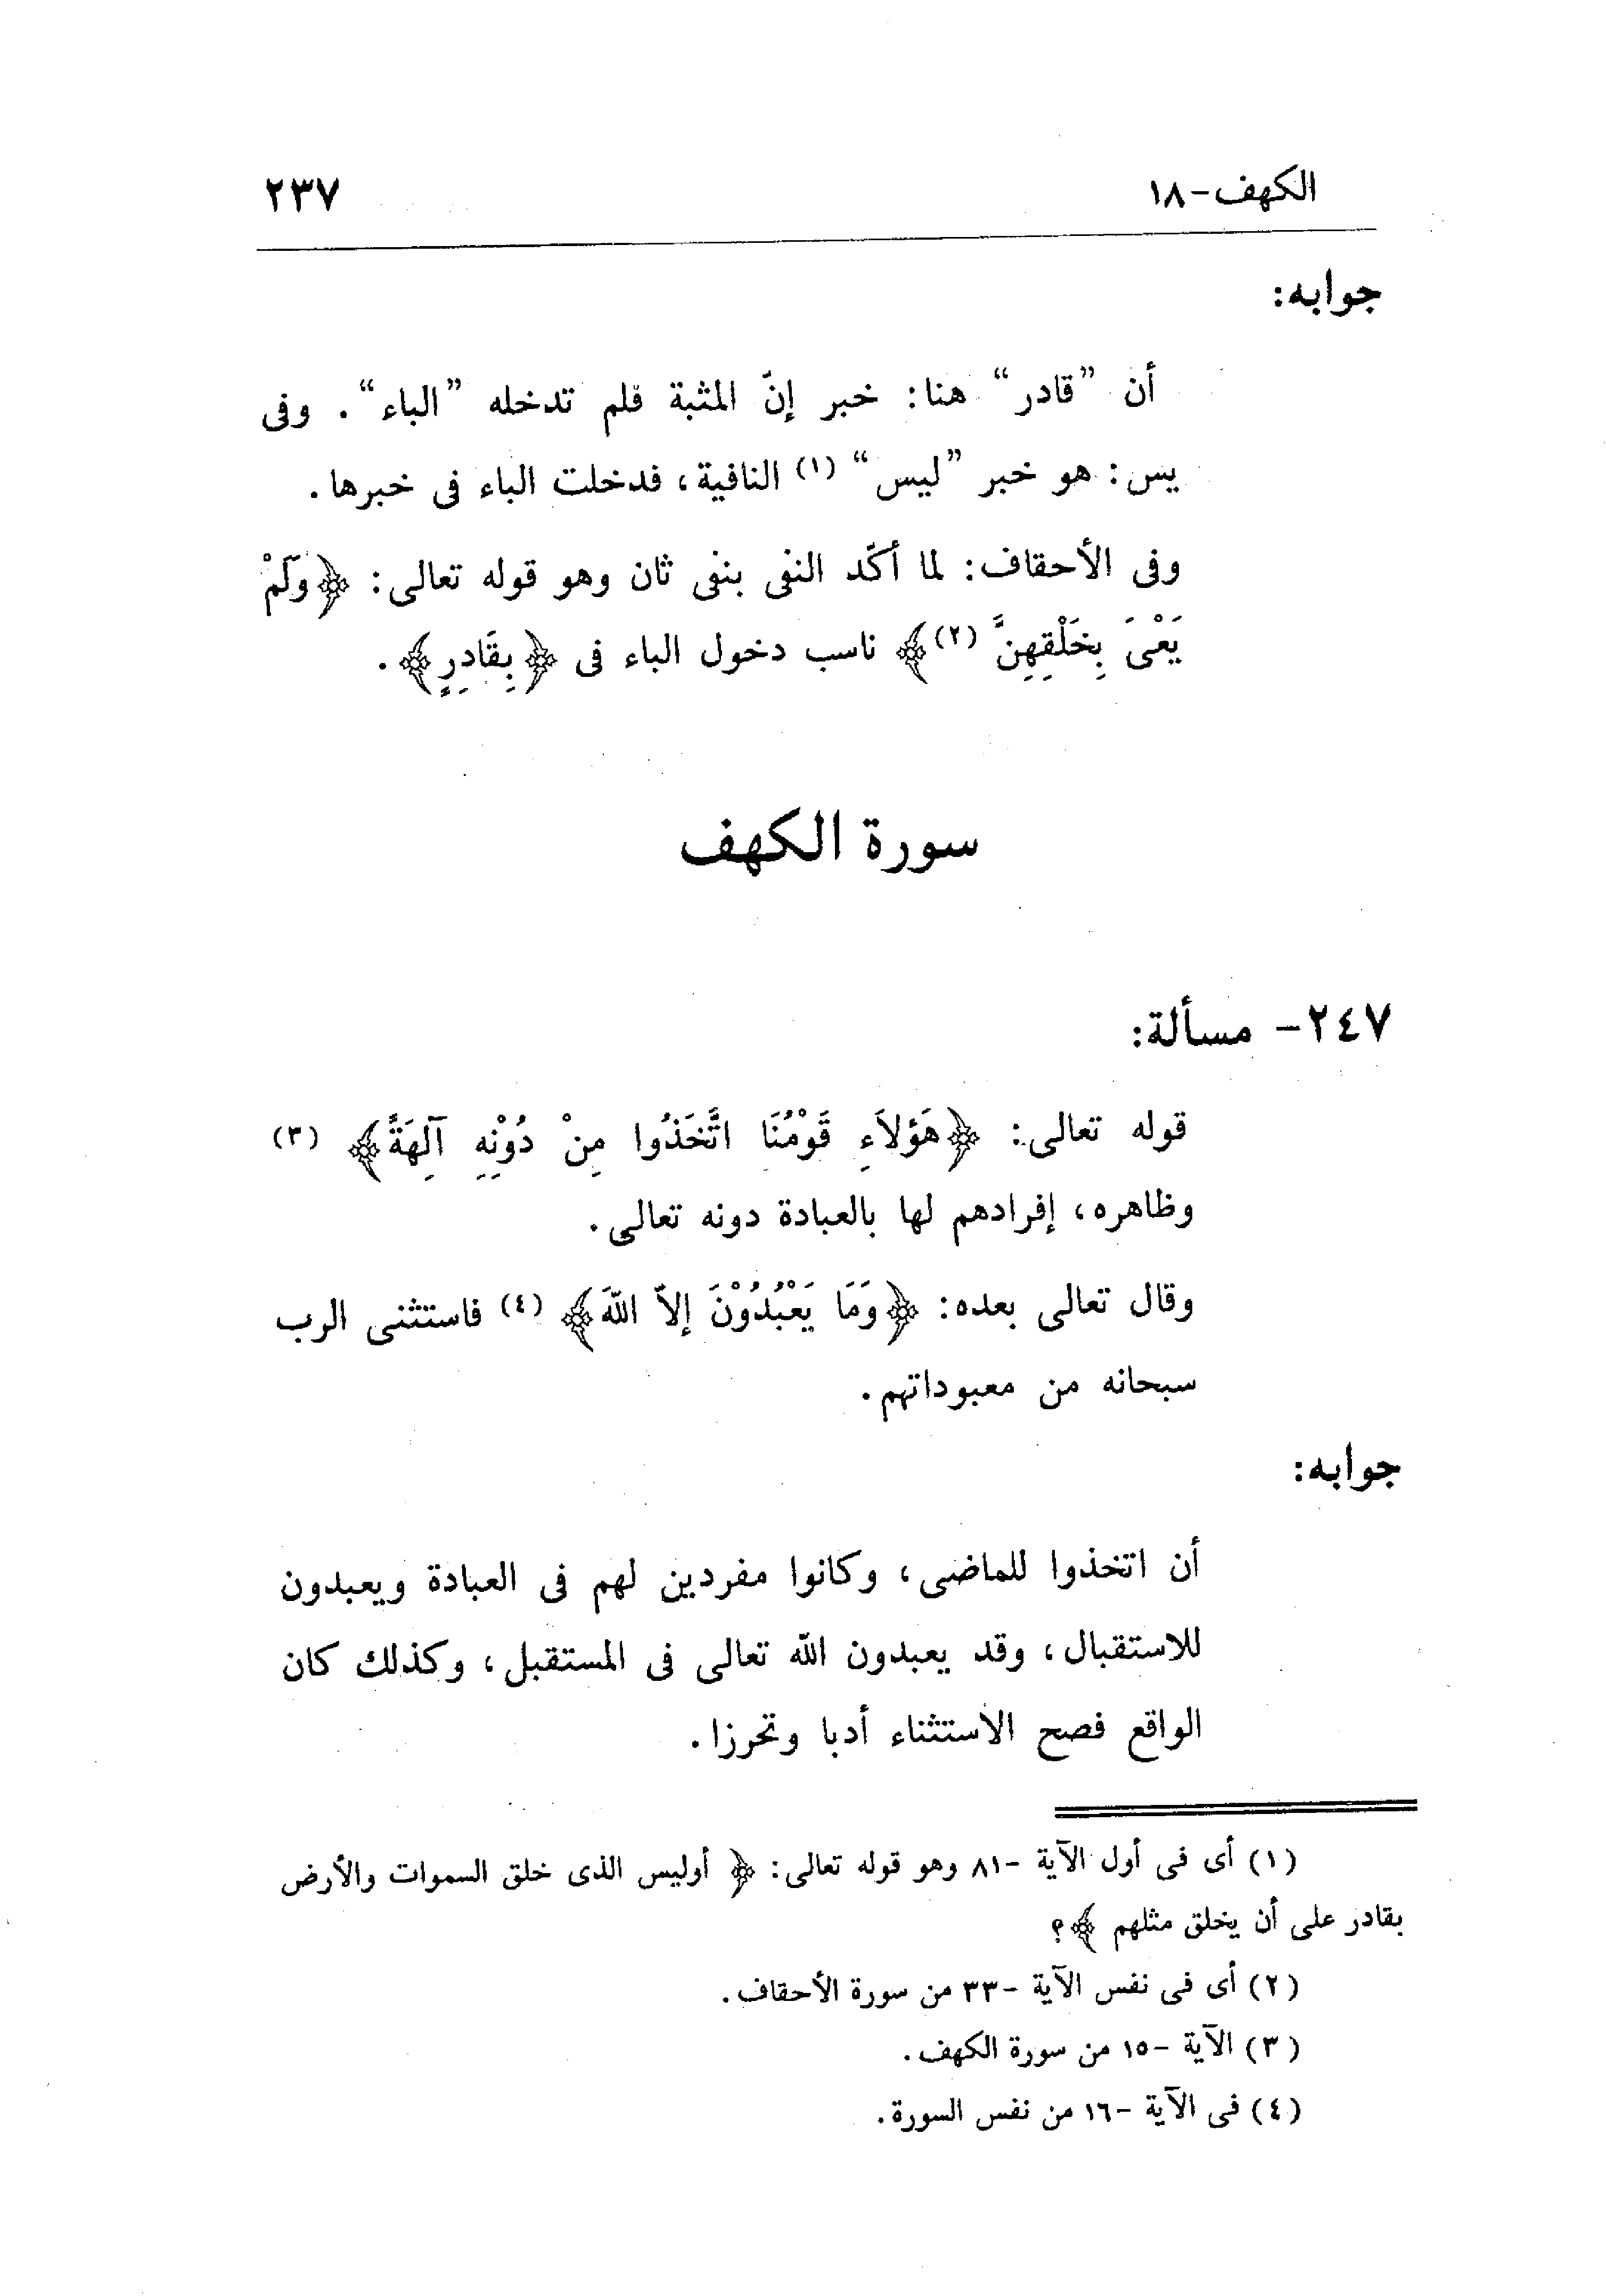 الكهف-١٨ ٢٣٧
جوابه:
أن "قادر" هنا: خبر إنّ المثبة فلم تدخله "الباء". وفى
يس: هو خبر "ليس" (١) النافية، فدخلت الباء فى خبرها.
وفى الأحقاف: لما أكّد النفى بنفى ثان وهو قوله تعالى: ﴿وَلَمْ
يَعْىَ بِخَلْقِهِنَّ (٢)﴾ ناسب دخول الباء فى ﴿بِقَادِرٍ﴾.
سورة الكهف
٢٤٧- مسألة:
قوله تعالى: ﴿هَؤلاَءِ قَوْمُنَا اتَّخَذُوا مِنْ دُوْنِهِ آلِهَةً﴾ (٣)
وظاهره، إفرادهم لها بالعبادة دونه تعالى.
وقال تعالى بعده: ﴿وَمَا يَعْبُدُوْنَ إلاّ اللهَ﴾ (٤) فاستثنى الرب
سبحانه من معبوداتهم.
جوابه:
أن اتخذوا للماضى، وكانوا مفردين لهم فى العبادة ويعبدون
للاستقبال، وقد يعبدون الله تعالى فى المستقبل، وكذلك كان
الواقع فصح الاستثناء أدبا وتحرزا.
(١) أى فى أول الآية -٨١ وهو قوله تعالى: ﴿ أوليس الذى خلق السموات والأرض
بقادر على أن يخلق مثلهم ﴾؟
(٢) أى فى نفس الآية -٣٣ من سورة الأحقاف.
(٣) الآية -١٥ من سورة الكهف.
(٤) فى الآية -١٦ من نفس السورة.